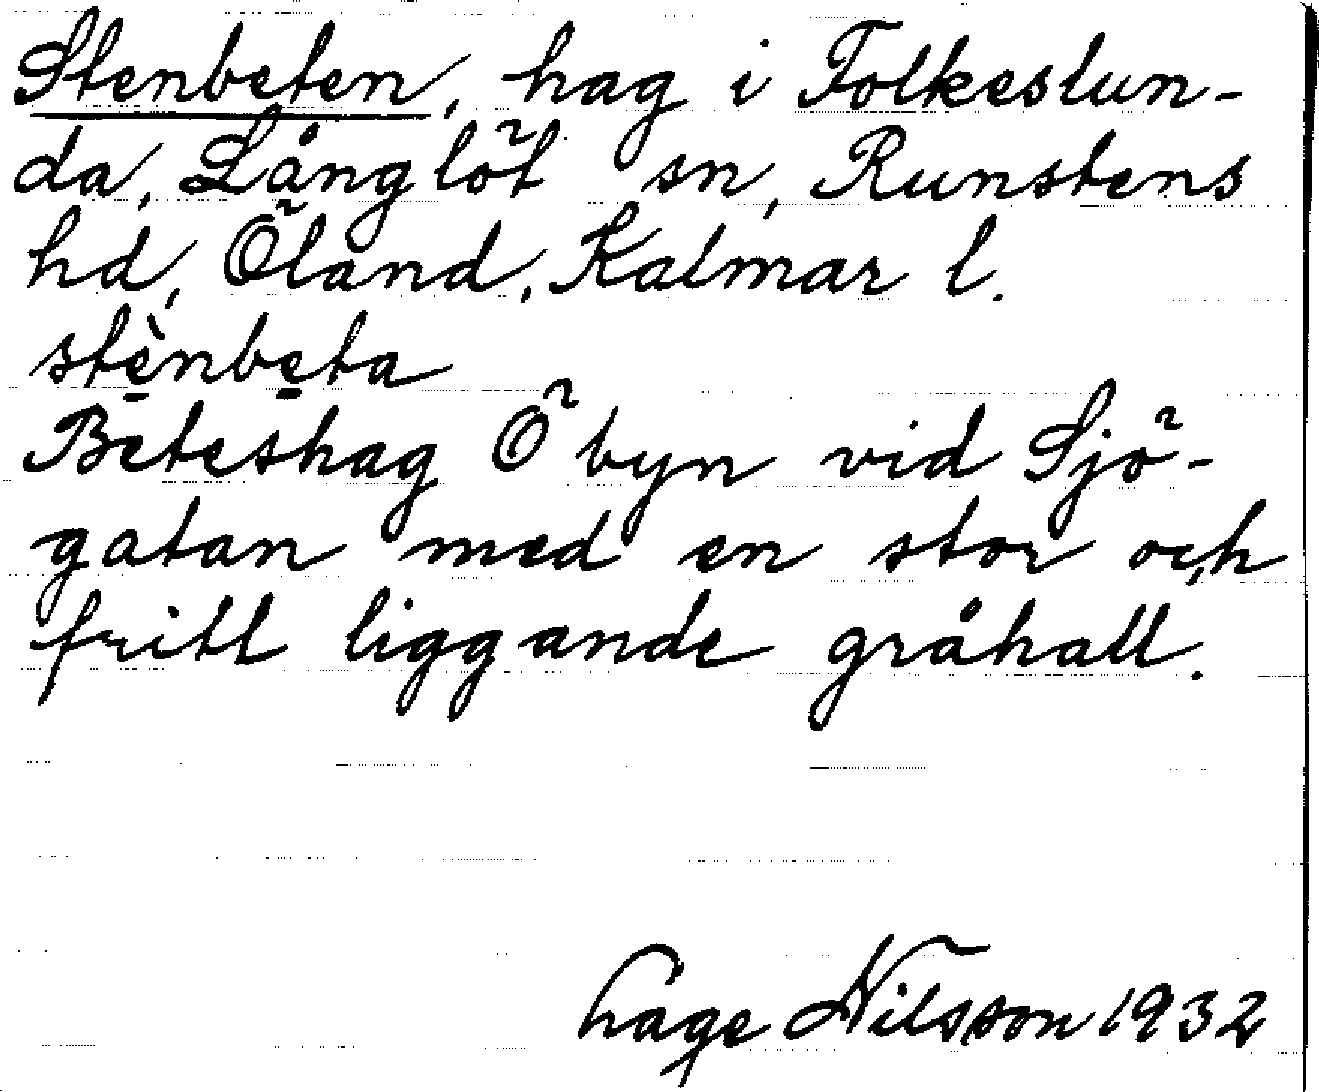 Stenbeten, hag i Folkeslun-
da, Långlöt sn, Runstens
hd, Öland, Kalmar l.
stè̠nbe̠ta
Beteshag Ö byn vid Sjö-
gatan med en stor och
fritt liggande gråhall.
Nilsson 1932